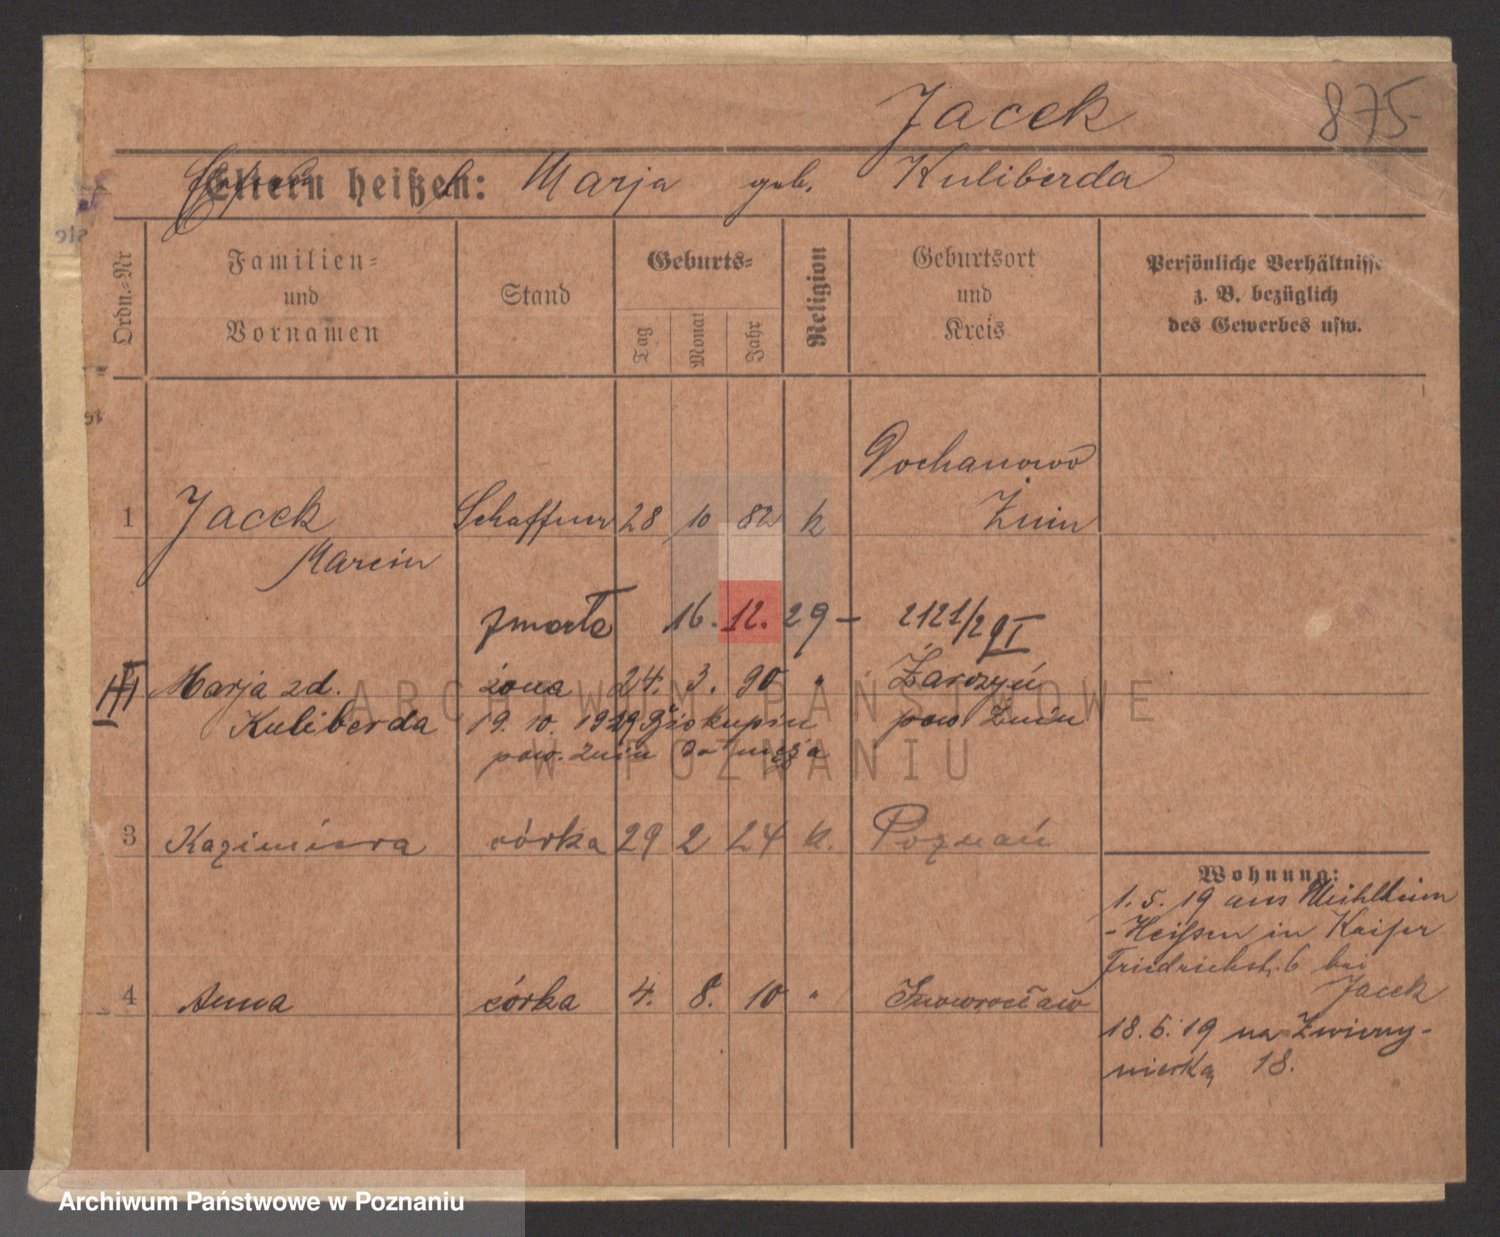 Jacek
875-
Eltern heißen: Marja geb. Kuliberda
Ordn.-Nr
Familien-
und
Vornamen
Stand
Geburts-
Tag
Monat
Jahr
Religion
Geburtsort
und
Kreis
Persönliche Verhältnisse
z. B. bezüglich
des Gewerbes usw.
Gochanowo
1 Jacek Schaffner 28 10 82 k Żnin
Marcin
zmarła 16. 12. 29 - 2121/29 I
III Marja zd. żona 24. 3. 90 " Żarczyń
Kuliberda 19. 10. 1929 Biskupin pow. Żnin
pow. Żnin do męża
3 Kazimiera córka 29 2 24 k. Poznań
Wohnung:
1. 5. 19 aus Mühlheim
-Heißen in Kaiser
Friedrichst. 6 bei
Jacek
4 Anna córka 4. 8. 10 " Inowrocław
18. 6. 19 na Zwierzy-
niecką 18.
ARCHIWUM PAŃSTWOWE
W POZNANIU
Archiwum Państwowe w Poznaniu